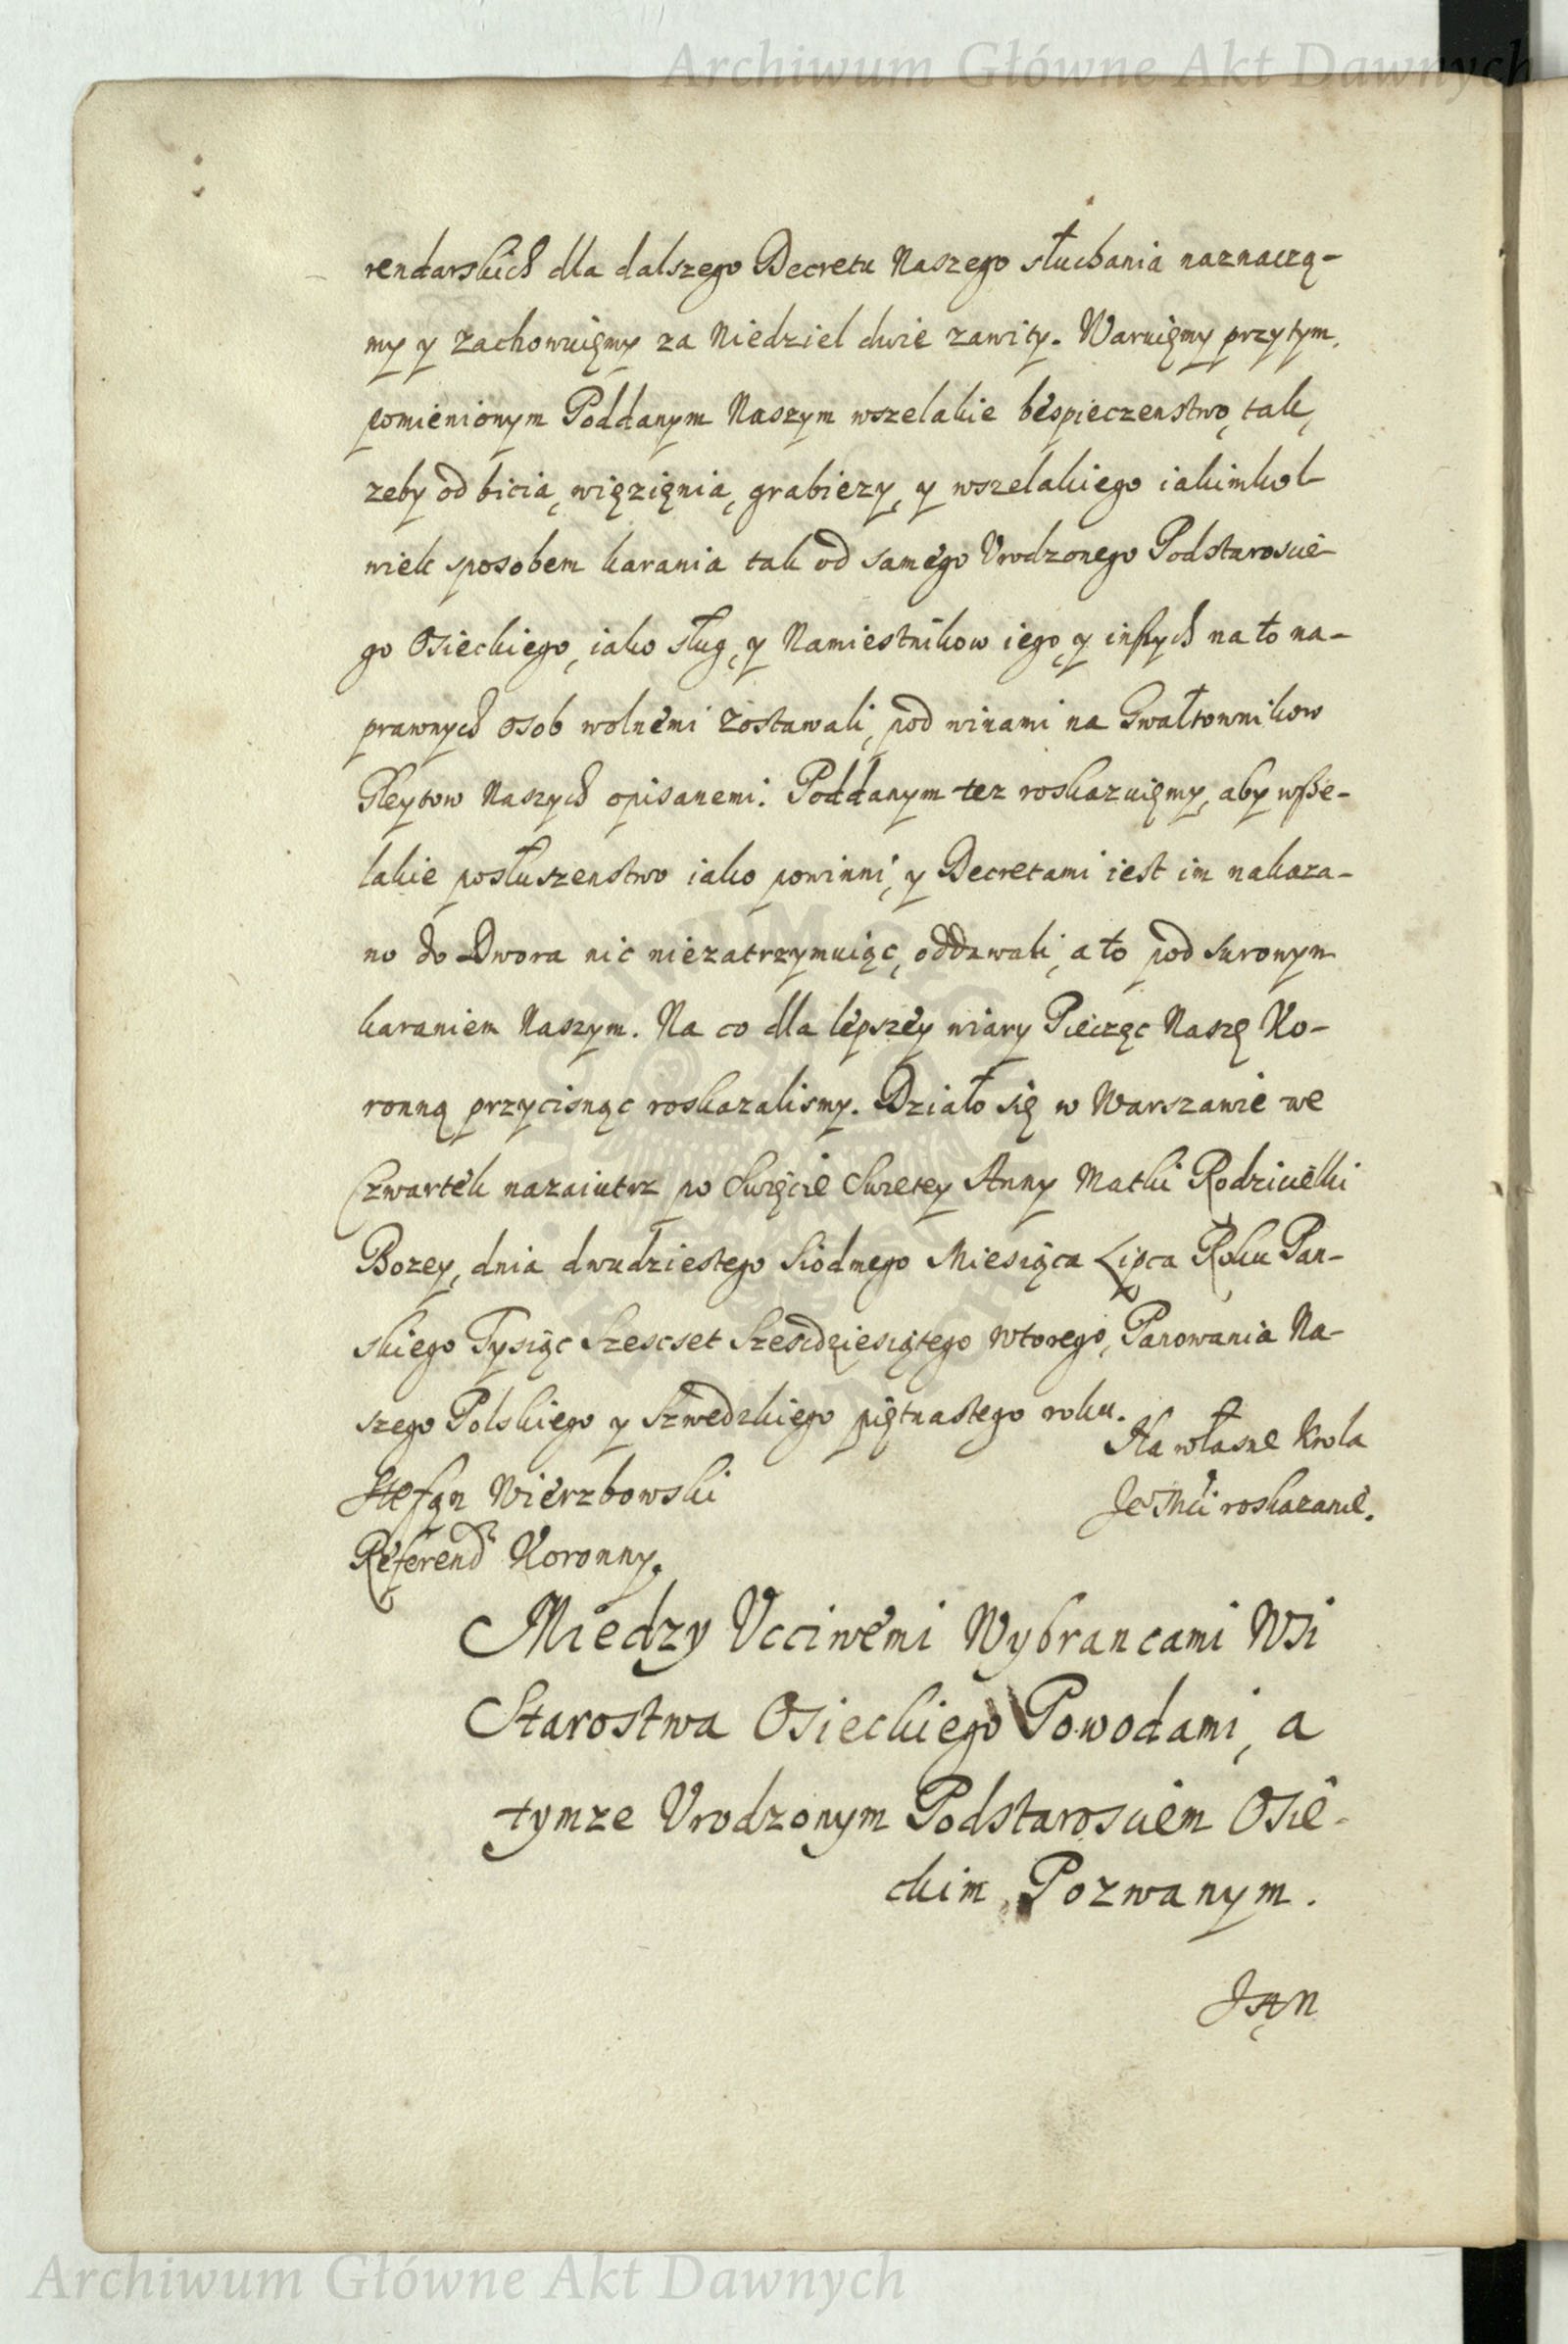 Archiwum Główne Akt Dawnych
rendarskich dla dalszego Decretu Naszego słuchania naznaczą-
my y zachowuięmy za Niedziel dwie zawity. Waruięmy przytym,
pomienionym Poddanym Naszym wszelakie bespieczenstwo, tak,
zeby od bicia, więzięnia, grabiezy, y wszelakiego iakimkol-
wiek sposobem karania tak od samego Vrodzonego Podstaroscie-
go Osieckiego, iako sług, y Namiestnikow iego, y inszych na to na-
prawnych osob wolnemi zostawali, pod winami na Gwałtownikow
Gleytow Naszych opisanemi. Poddanym tez roskazuięmy, aby wsze-
lakie posłuszenstwo iako powinni, y Decretami iest im nakaza-
no do Dwora nic niezatrzymuiąc, oddawali, a to pod surowym
karaniem Naszym. Na co dla lepszey wiary Pieczęc Naszę Ko-
ronną przycisnąc roskazalismy. Działo się w Warszawie we
Czwartek nazaiutrz po Swięcie Swietey Anny Matki Rodzicielki
Bozey, dnia dwudziestego Siodmego Miesiąca Lipca Roku Pan-
skiego Tysiąc Szescset Szescdziesiątego wtorego, Panowania Na-
szego Polskiego y Szwedzkiego piętnastego roku.
Na własne Krola
Stefan Wierzbowski
Je° Mci roskazanie.
Referend Koronny.
Miedzy Vcciwemi Wybrancami Wsi
Starostwa Osieckiego Powodami, a
tymze Vrodzonym Podstarosciem Osie-
ckim, Pozwanym.
Jan
Archiwum Główne Akt Dawnych